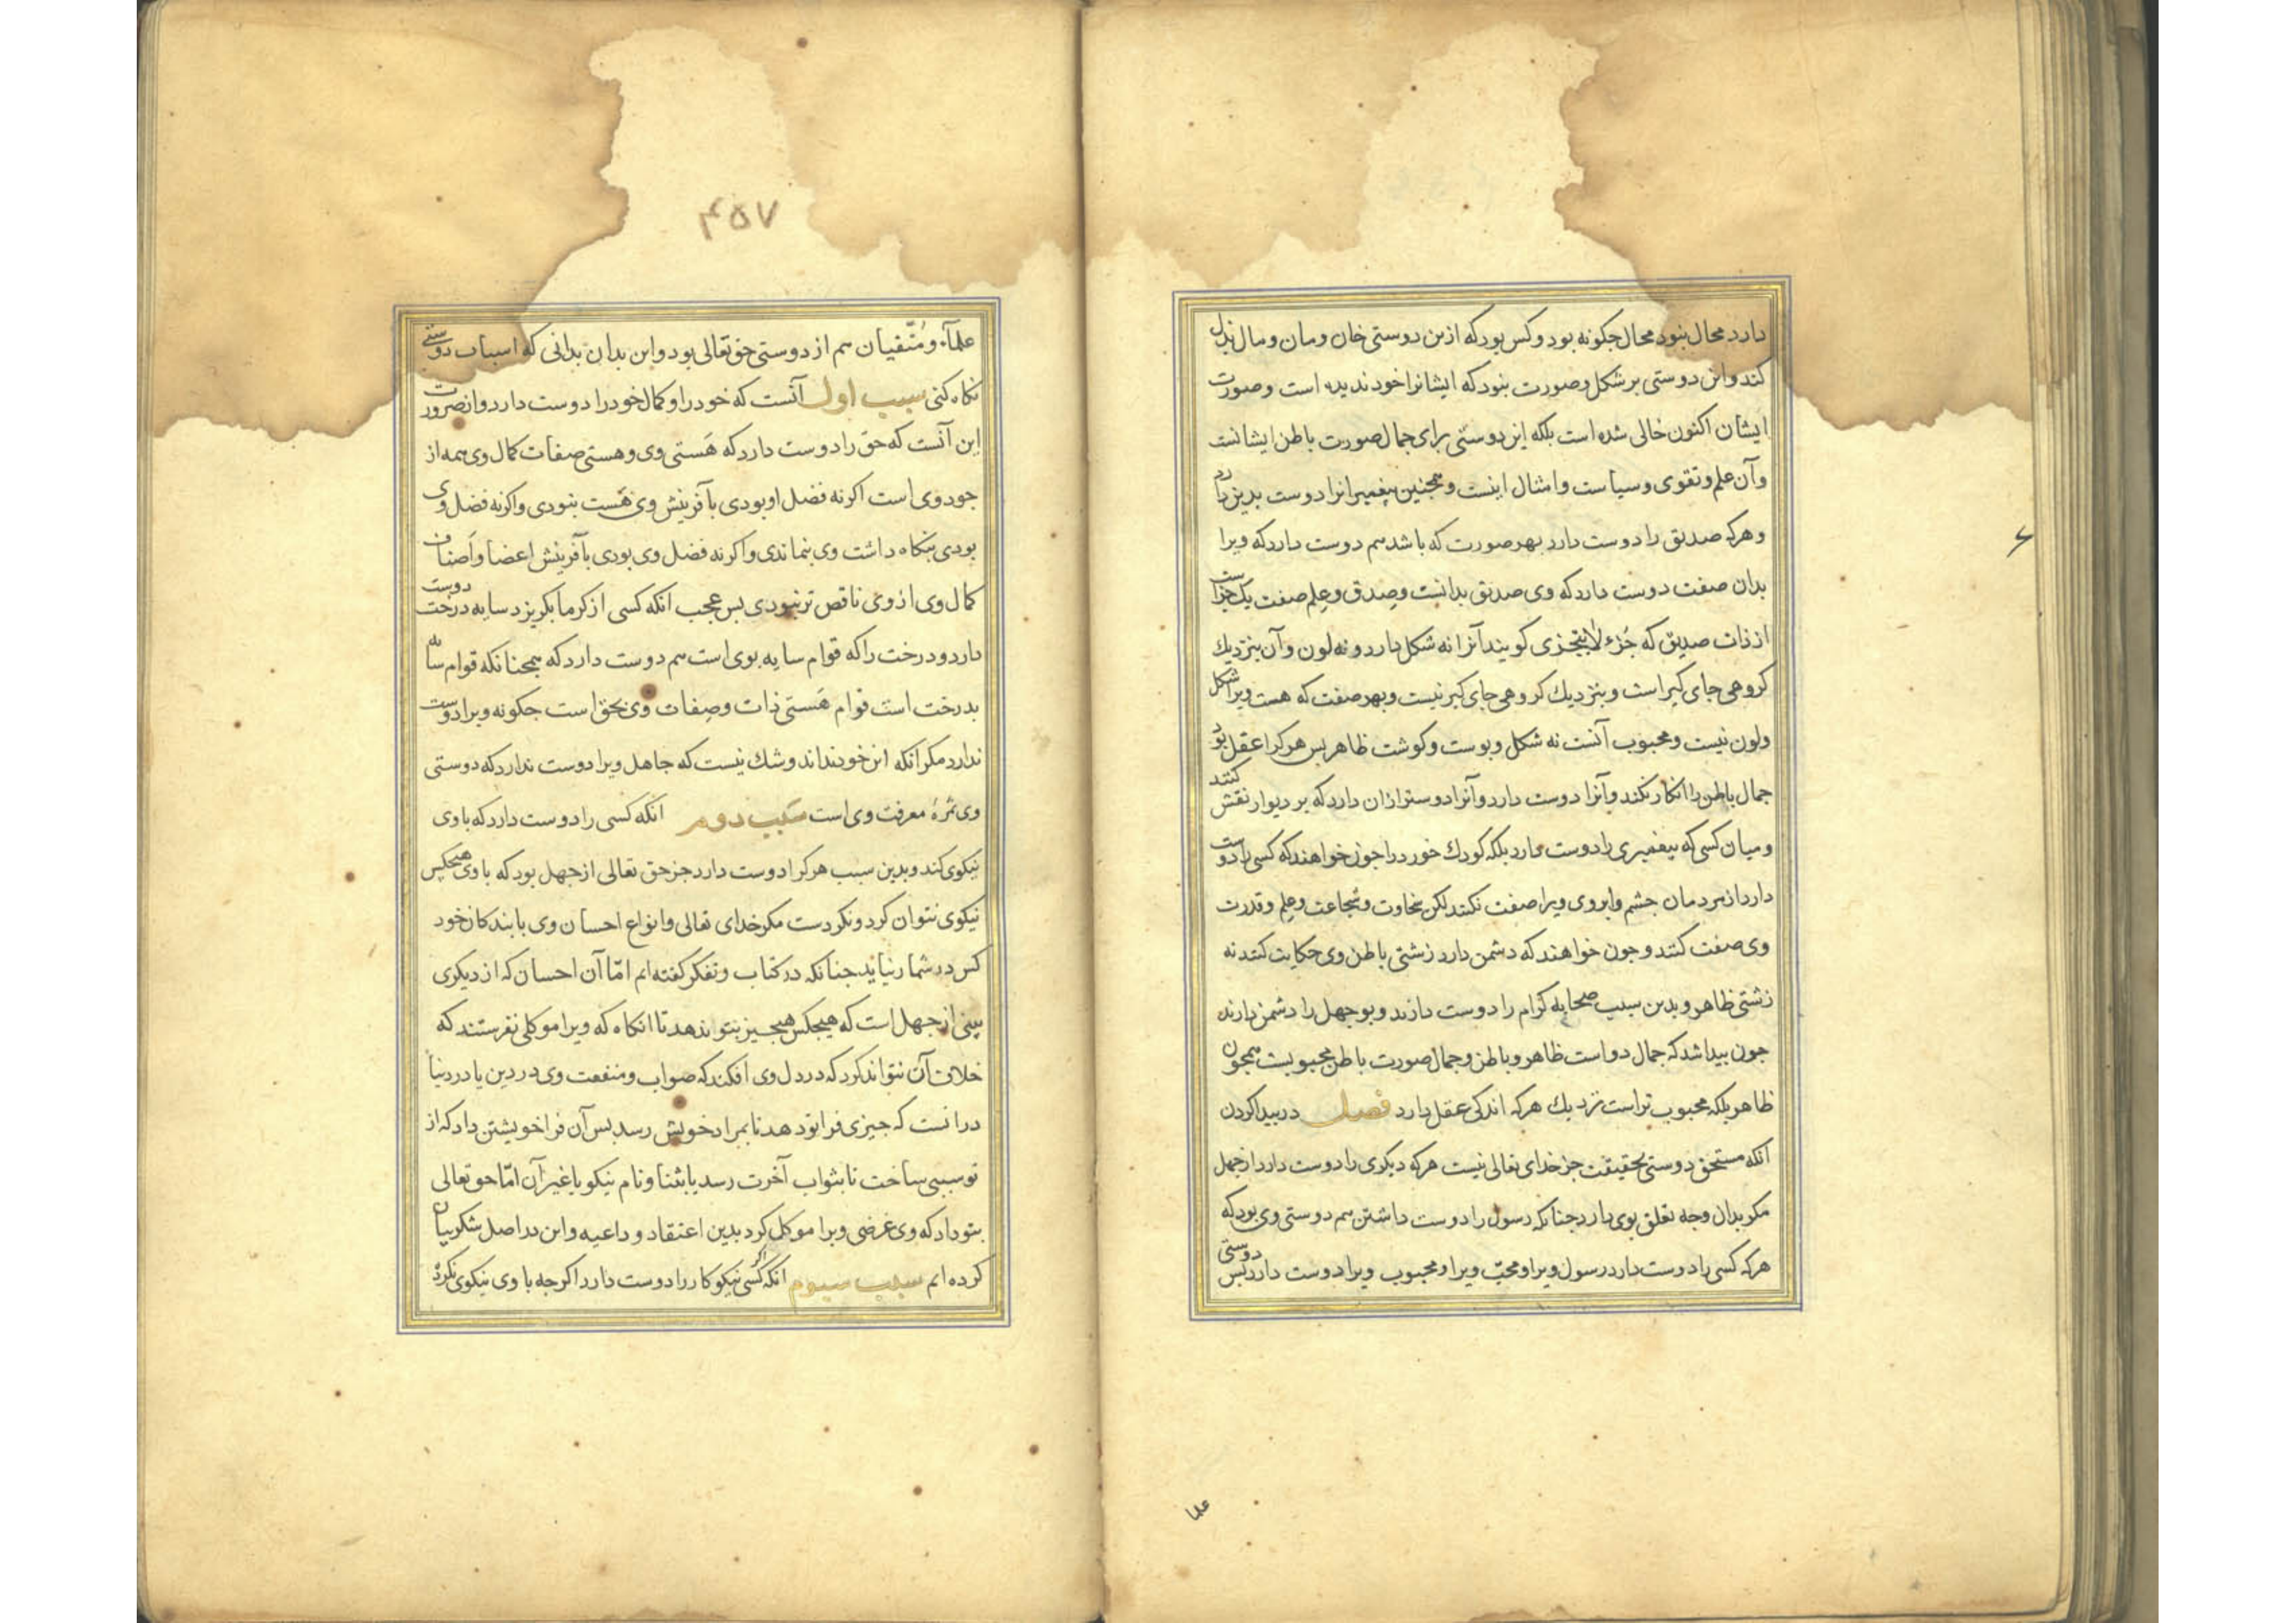 دارد محال بنود محال جکونه بود و کس بود که ازین دوستی خان ومان ومال بذل
کند واین دوستی بر شکل وصورت بنود که ایشانرا خود ندیده است وصورت
ایشان اکنون خالی شده است بلکه این دوستی برای جمال صورت باطن ایشانست
وآن علم وتقوی وسیاست وامثال اینست و همجنین پیغمبرانرا دوست بدین دارد
وهرکه صدیق را دوست دارد بهر صورت که باشد هم دوست دارد که ویرا
بدان صفت دوست دارد که وی صدیق بدانست وصدق وعلم صفت یک جزاست
از ذات صدیق که جُزء لایتجزی کویند آنرا نه شکل دارد و نه لون وآن بنزدیك
کروهی جای کیر است و بنزدیك کروهی جای کیر نیست وبهر صفت که هست ویرا شکل
ولون نیست ومحبوب آنست نه شکل وبوست وکوشت ظاهر بس هرکرا عقل بود
جمال باطن را انکار نکند وآنرا دوست دارد وآنرا دوستر ازان دارد که بر دیوار نقش کنند
ومیان کسی که بیغمبری را دوست دارد بلکه کودك خورد را جون خواهند که کسی را دوست
دارد از مردمان جشم وابروی ویرا صفت نکنند لکن سخاوت وشجاعت وعلم وقدرت
وی صفت کنند وجون خواهند که دشمن دارد زشتی باطن وی حکایت کنند نه
زشتی ظاهر وبدین سبب صحابه کرام را دوست دارند وبوجهل را دشمن دارند
جون بیدا شد که جمال دو است ظاهر وباطن وجمال صورت باطن محبوبست همجون
ظاهر بلکه محبوب تراست نزدیك هرکه اندکی عقل دارد فصل در بیدا کردن
آنکه مستحق دوستی بحقیقت جز خدای تعالی نیست هرکه دیکری را دوست دارد از جهل
مکر بدان وجه تعلق بوی دارد جنانکه رسول را دوست داشتن هم دوستی وی بود که
هرکه کسی را دوست دارد رسول ویرا ومحبّ ویرا ومحبوب ویرا دوست دارد بس دوستی
علما
۴۵۷
علمآء ومُتّقیان هم از دوستی حق تعالی بود واین بدان بدانی که اسباب دوستی
نکاه کنی سبب اول آنست که خود را وکمال خود را دوست دارد واز ضرورت
این آنست که حق را دوست دارد که هَستی وی وهستی صفات کمال وی همه از
جود وی است اکر نه فضل او بودی بآفرینش وی هَست بنودی واکر نه فضل وی
بودی بنکاه داشت وی بنماندی واکر نه فضل وی بودی بآفرینش اعضا واَصناف
کمال وی از وی ناقص تر نبودی بس عجب انکه کسی از کرما بکریزد سایه درخت دوست
دارد ودرخت را که قوام سایه بوی است هم دوست دارد که همجنانکه قوام سایه
بدرخت است قوام هَستی ذات وصِفات وی بحق است جکونه ویرا دوست
ندارد مکر انکه این خود نداند وشك نیست که جاهل ویرا دوست ندارد که دوستی
وی ثمرهٔ معرفت وی است سَبب دوم انکه کسی را دوست دارد که با وی
نیکوی کند وبدین سبب هرکرا دوست دارد جز حق تعالی از جهل بود که با وی هیجکس
نیکوی نتوان کرد ونکردست مکر خدای تعالی وانواع احسان وی با بندکان خود
کس در شمار نیاید جنانکه در کتاب وتفکر کفته ایم امّا آن احسان که از دیکری
بینی از جهل است که هیجکس هیجیز بتو ندهد تا انکاه که ویرا موکلی نفرستند که
خلاف آن نتواند کرد که در دل وی افکند که صواب ومنفعت وی در دین یا در دنیا
درانست که جیزی فرا تو دهد تا بمراد خویش رسد بس آن فرا خویشتن داد که از
تو سببی ساخت تا بثواب آخرت رسد یا بثنا ونام نیکو یا غیر آن امّا حق تعالی
بتو داد که وی غرضی ویرا موکل کرد بدین اعتقاد و داعیه واین در اصل شکر بیان
کرده ایم سبب سیوم انکه کسی نیکو کار را دوست دارد اکرجه با وی نیکوی نکرد